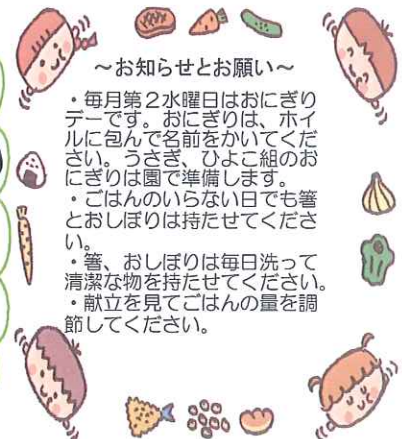 ～お知らせとお願い～
・毎月第２水曜日はおにぎり
デーです。おにぎりは、ホイ
ルに包んで名前をかいてくだ
さい。うさぎ、ひよこ組のお
にぎりは園で準備します。
・ごはんのいらない日でも箸
とおしぼりは持たせてくださ
い。
・箸、おしぼりは毎日洗って
清潔な物を持たせてください。
・献立を見てごはんの量を調
節してください。